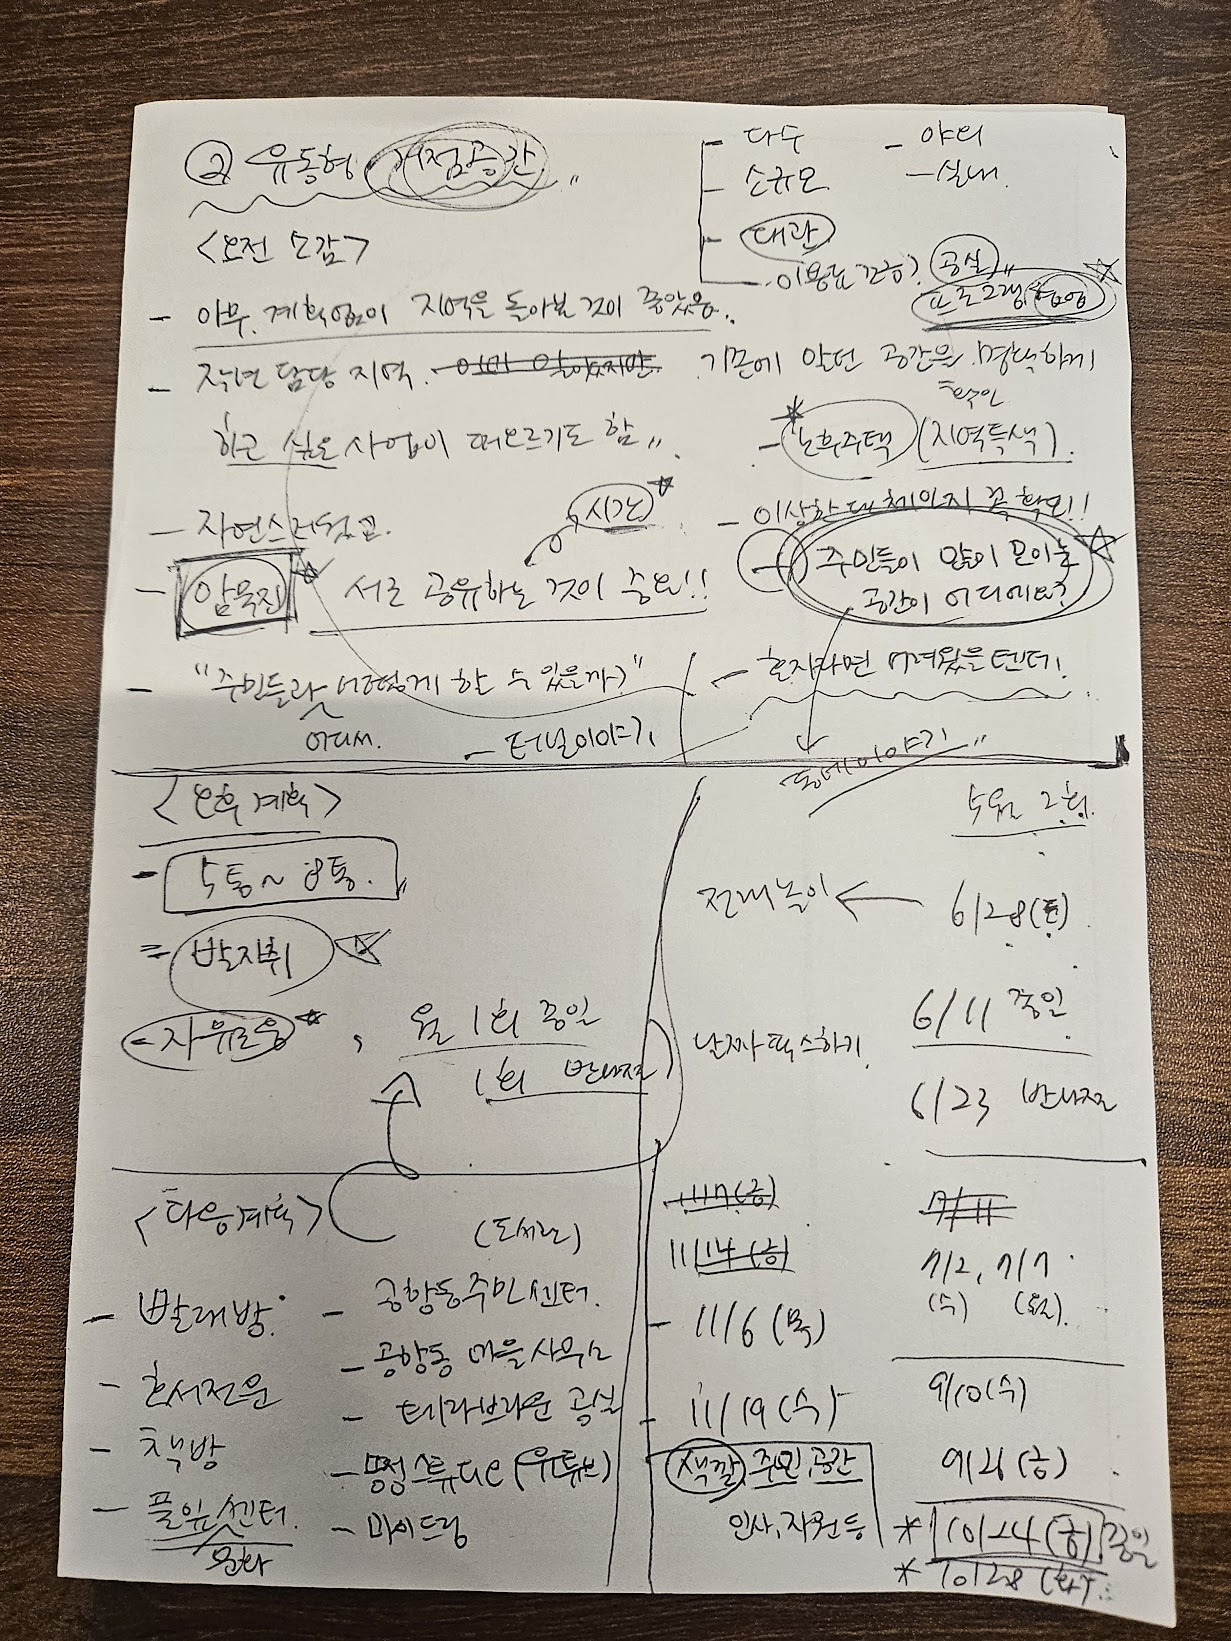 ② 유동형 거점공간"
- 다수 - 야외
- 소규모 - 실내
- 대관
- 이용료 공유? 공실"
프로그램 협업
<오전 소감>
- 아무 계획없이 지역을 돌아본 것이 좋았음..
- 작년 담당 지역. 기존에 알던 공간을 명확하게
확인
하고 싶은 사업이 떠오르기도 함"
- 노후주택 (지역특색).
- 자연스러웠고.
시간
- 이상한 대체의지 꼭 확인!!
- 암묵진 서로 공유하는 것이 중요!!
- 주민들이 많이 모이는
공간이 어디에요?
- "주민들과 어떻게 할 수 있을까?"
어디서.
- 혼자라면 어려웠을텐데!
- 터널이야기,
동네이야기"
<오후 계획>
- 5통~8통.
= 발자취
- 자유로움, 월 1회 종일
1회 반나절
5월 2회.
전래놀이 ← 6/28(토)
6/11 종일
날짜 픽스하기
6/23 반나절
<다음계획>
(도서관)
- 빨래방.
- 호서전운
- 책방
- 풀잎센터.
문화
- 공항동주민센터.
- 공항동 마을사무소
- 테라브라운 공실
- 명정스튜디오 (유튜브)
- 마이드림
11/7(금)
11/14(금)
- 11/6 (목)
- 11/19 (수)
색깔, 주민, 공간
인사, 자원 등
7/11
7/2, 7/7
(수) (월).
9/10(수)
9/26(금)
* 10/24(금). 종일
* 10/28 (화).